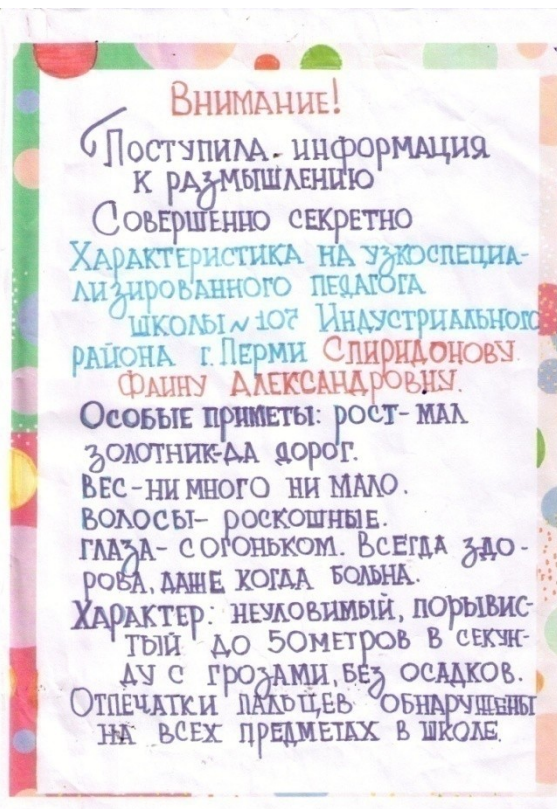 Внимание!
Поступила информация
к размышлению
Совершенно секретно
Характеристика на узкоспециа-
лизированного педагога
школы № 107 Индустриального
района г. Перми Спиридонову
Фаину Александровну.
Особые приметы: рост - мал
золотник - да дорог.
вес - ни много ни мало.
волосы - роскошные.
глаза - с огоньком. Всегда здо-
рова, даже когда больна.
Характер: неуловимый, порывис-
тый до 50 метров в секун-
ду с грозами, без осадков.
Отпечатки пальцев обнаружены
на всех предметах в школе.